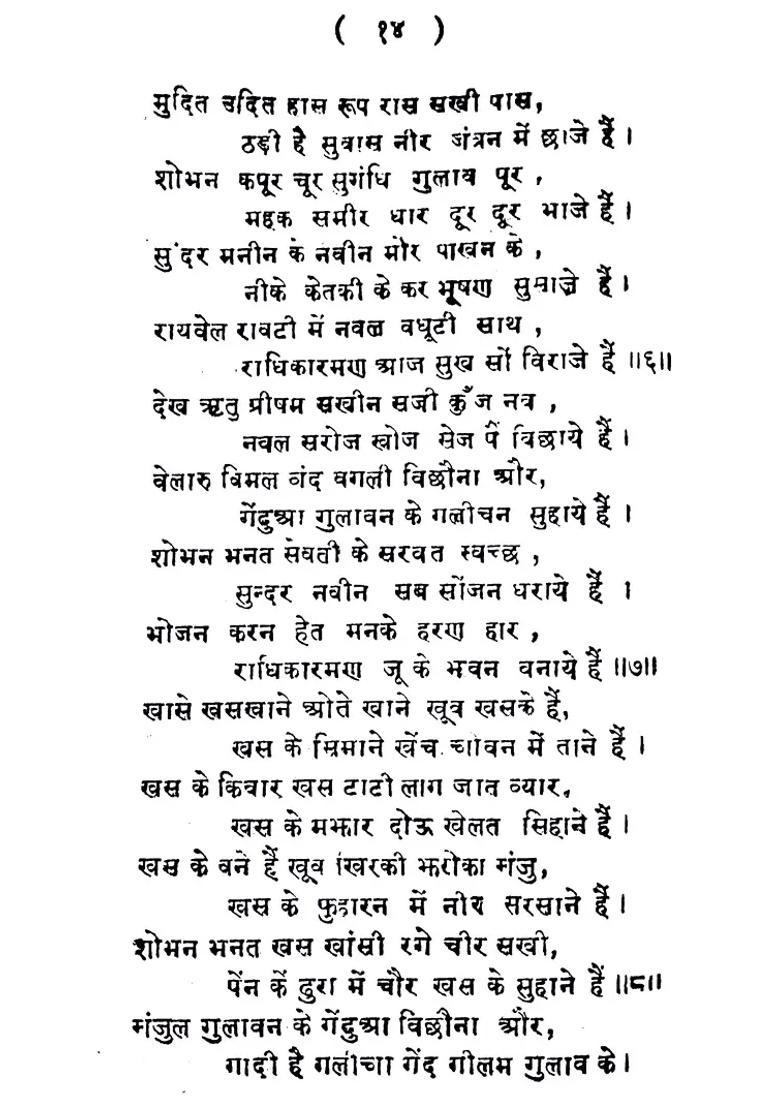 ( १४ )
मुदित उदित हास रूप रास सखी पास,
ठड़ी है सुवास नीर जंत्रन में छाजे हैं ।
शोभन कपूर चूर सुगंधि गुलाव पूर ,
महक समीर धार दूर दूर भाजे हैं ।
सुंदर मनीन के नवीन मोर पाखन के ,
नीके केतकी के कर भूषण सुसाजे हैं ।
रायवेल रावटी में नवल वधूटी साथ ,
राधिकारमण आज सुख सों विराजे हैं ॥६॥
देख ऋतु ग्रीषम सखीन सजी कुँज नव ,
नवल सरोज खोज सेज पें विछाये हैं ।
वेलारु विमल वंद वगली विछौना और,
गेंदुआ गुलावन के गलीचन सुहाये हैं ।
शोभन भनत सेवती के सरवत स्वच्छ ,
सुन्दर नवीन सब सोंजन धराये हैं ।
भोजन करन हेत मनके हरण हार ,
राधिकारमण जू के भवन वनाये हैं ॥७॥
खासे खसखाने ओते खाने खूव खसके हैं,
खस के सिमाने खेंच चोवन में ताने हैं ।
खस के किवार खस टाटी लाग जात व्यार,
खस के मझार दोऊ खेलत सिहाने हैं ।
खस के वने हैं खूव खिरकी झरोका मंजु,
खस के फुहारन में नीर सरसाने हैं ।
शोभन भनत खस खांसी रगे चीर सखी,
पेंन कें दुरा में चौर खस के सुहाने हैं ॥८॥
मंजुल गुलावन के गेंदुआ विछौना और,
गादी है गलीचा गेंद गीलम गुलाव के ।